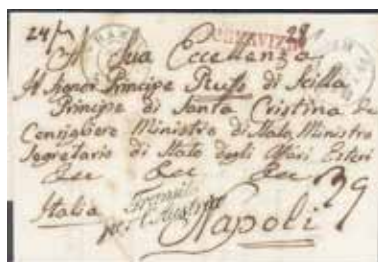 24/7 28
A Sua Eccellenza
Il Signor Principe Ruffo di Scilla
Principe di Santa Cristina
Consigliere Ministro di Stato Ministro
Segretario di Stato degli Affari Esteri
&c &c &c
Transit
Italia per l'Austria
Napoli 39